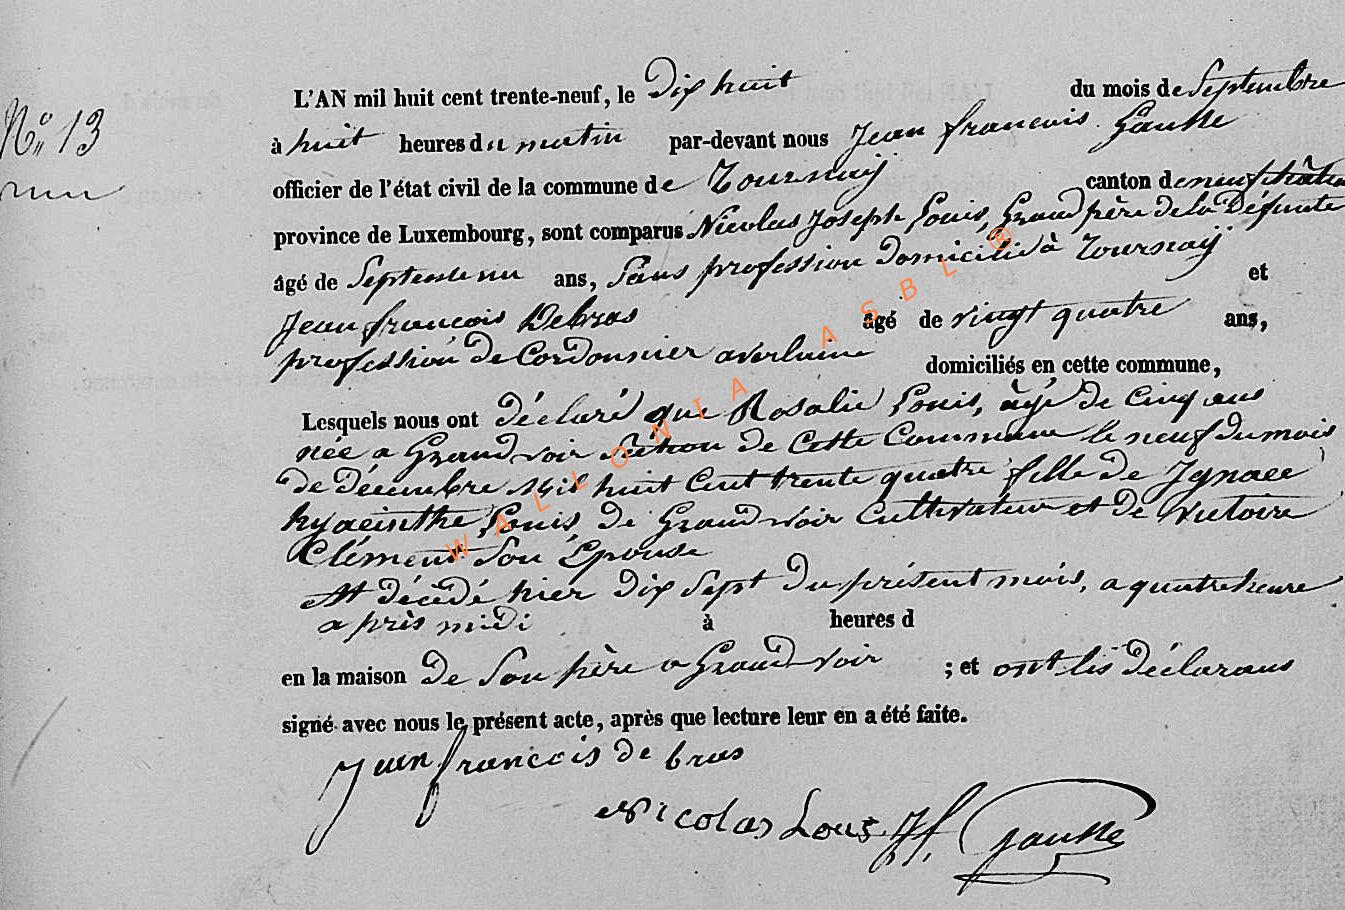 L'AN mil huit cent trente-neuf, le Dix huit du mois de Septembre
N° 13
à huit heures du matin par-devant nous Jean francois Gausse
officier de l'état civil de la commune de Tournaÿ canton de neufchâteau
province de Luxembourg, sont comparus Nicolas Joseph Louis, Grand père de La Défunte
âgé de Septente un ans, Sans profession domicilié à Tournaÿ et
Jean francois Debras âgé de vingt quatre ans,
profession de Cordonnier a verlaine domiciliés en cette commune,
Lesquels nous ont déclaré que Rosalie Louis, âgé de Cinq ans
née a Grandvoir Section de Cette Commune le neuf du mois
de décembre Mil huit Cent trente quatre fille de Ignace
hyacinthe Louis de Grandvoir Cultivateur et de Victoire
Clément Son Epouse
At décédé hier Dix Sept Du présent mois, a quatre heure
a près midi à heures d
en la maison de Son père a Grandvoir ; et ont les Déclarans
signé avec nous le présent acte, après que lecture leur en a été faite.
Jean francois de bras
Nicolas Louis Jf Gausse
WALLONIA ASBL ®